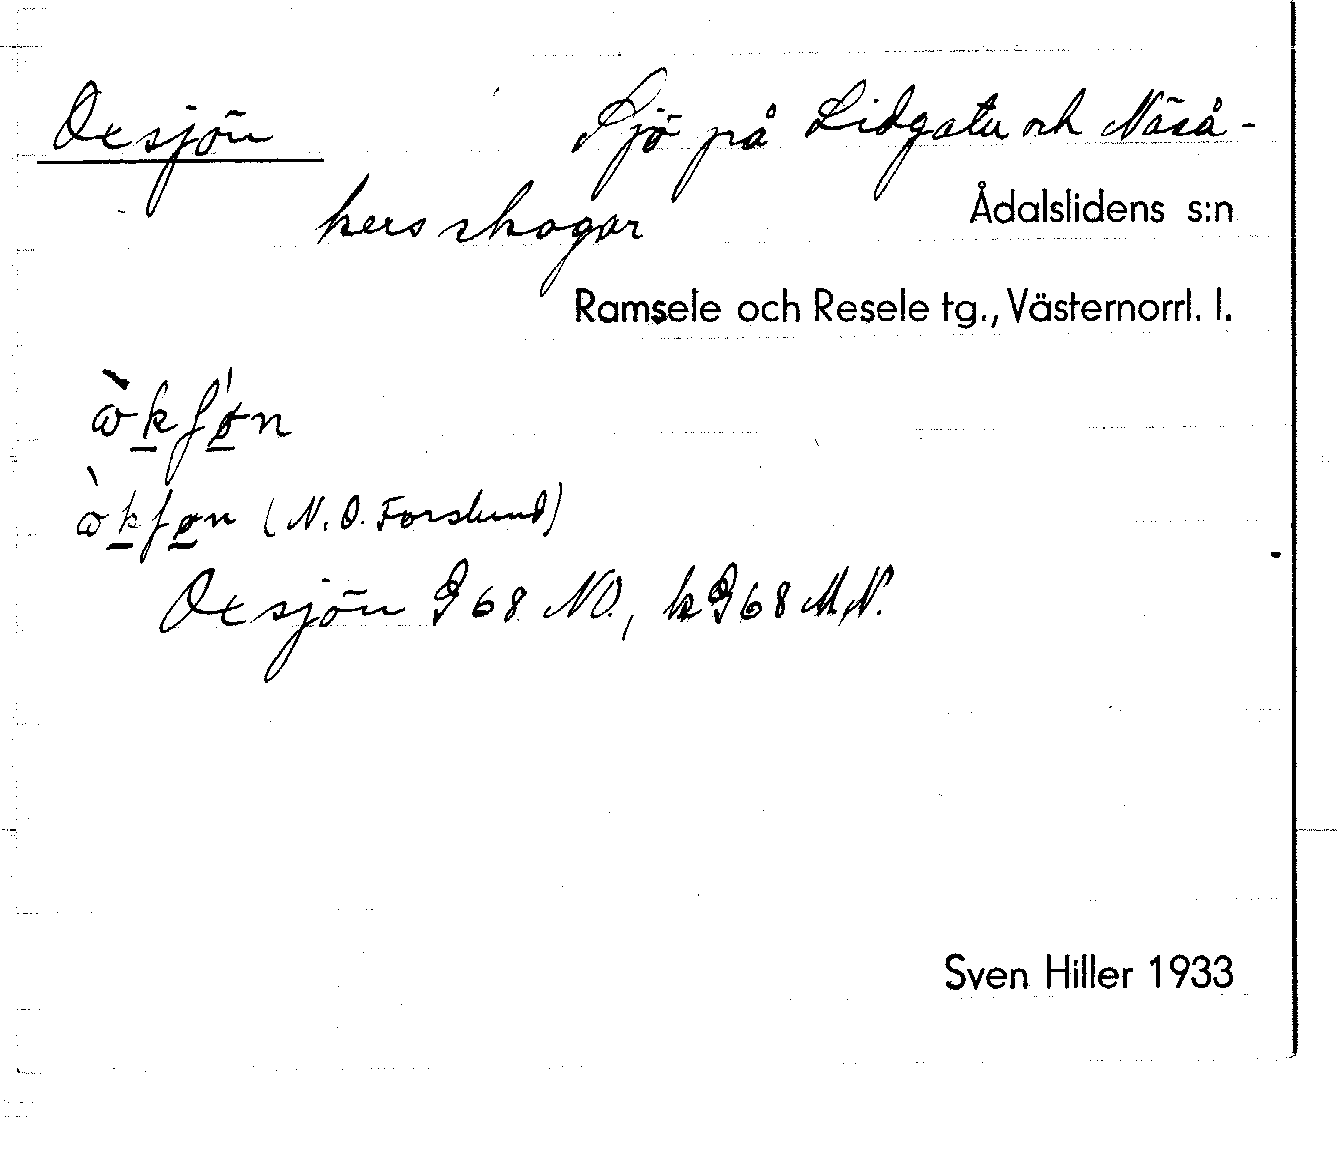 Oxsjön Sjö på Lidgatu och Näså-
kers skogar Ådalslidens s:n
Ramsele och Resele tg., Västernorrl. l.
(N. O. Forslund)
Oxsjön G 68 NO., kG 68 M,N.
Sven Hiller 1933